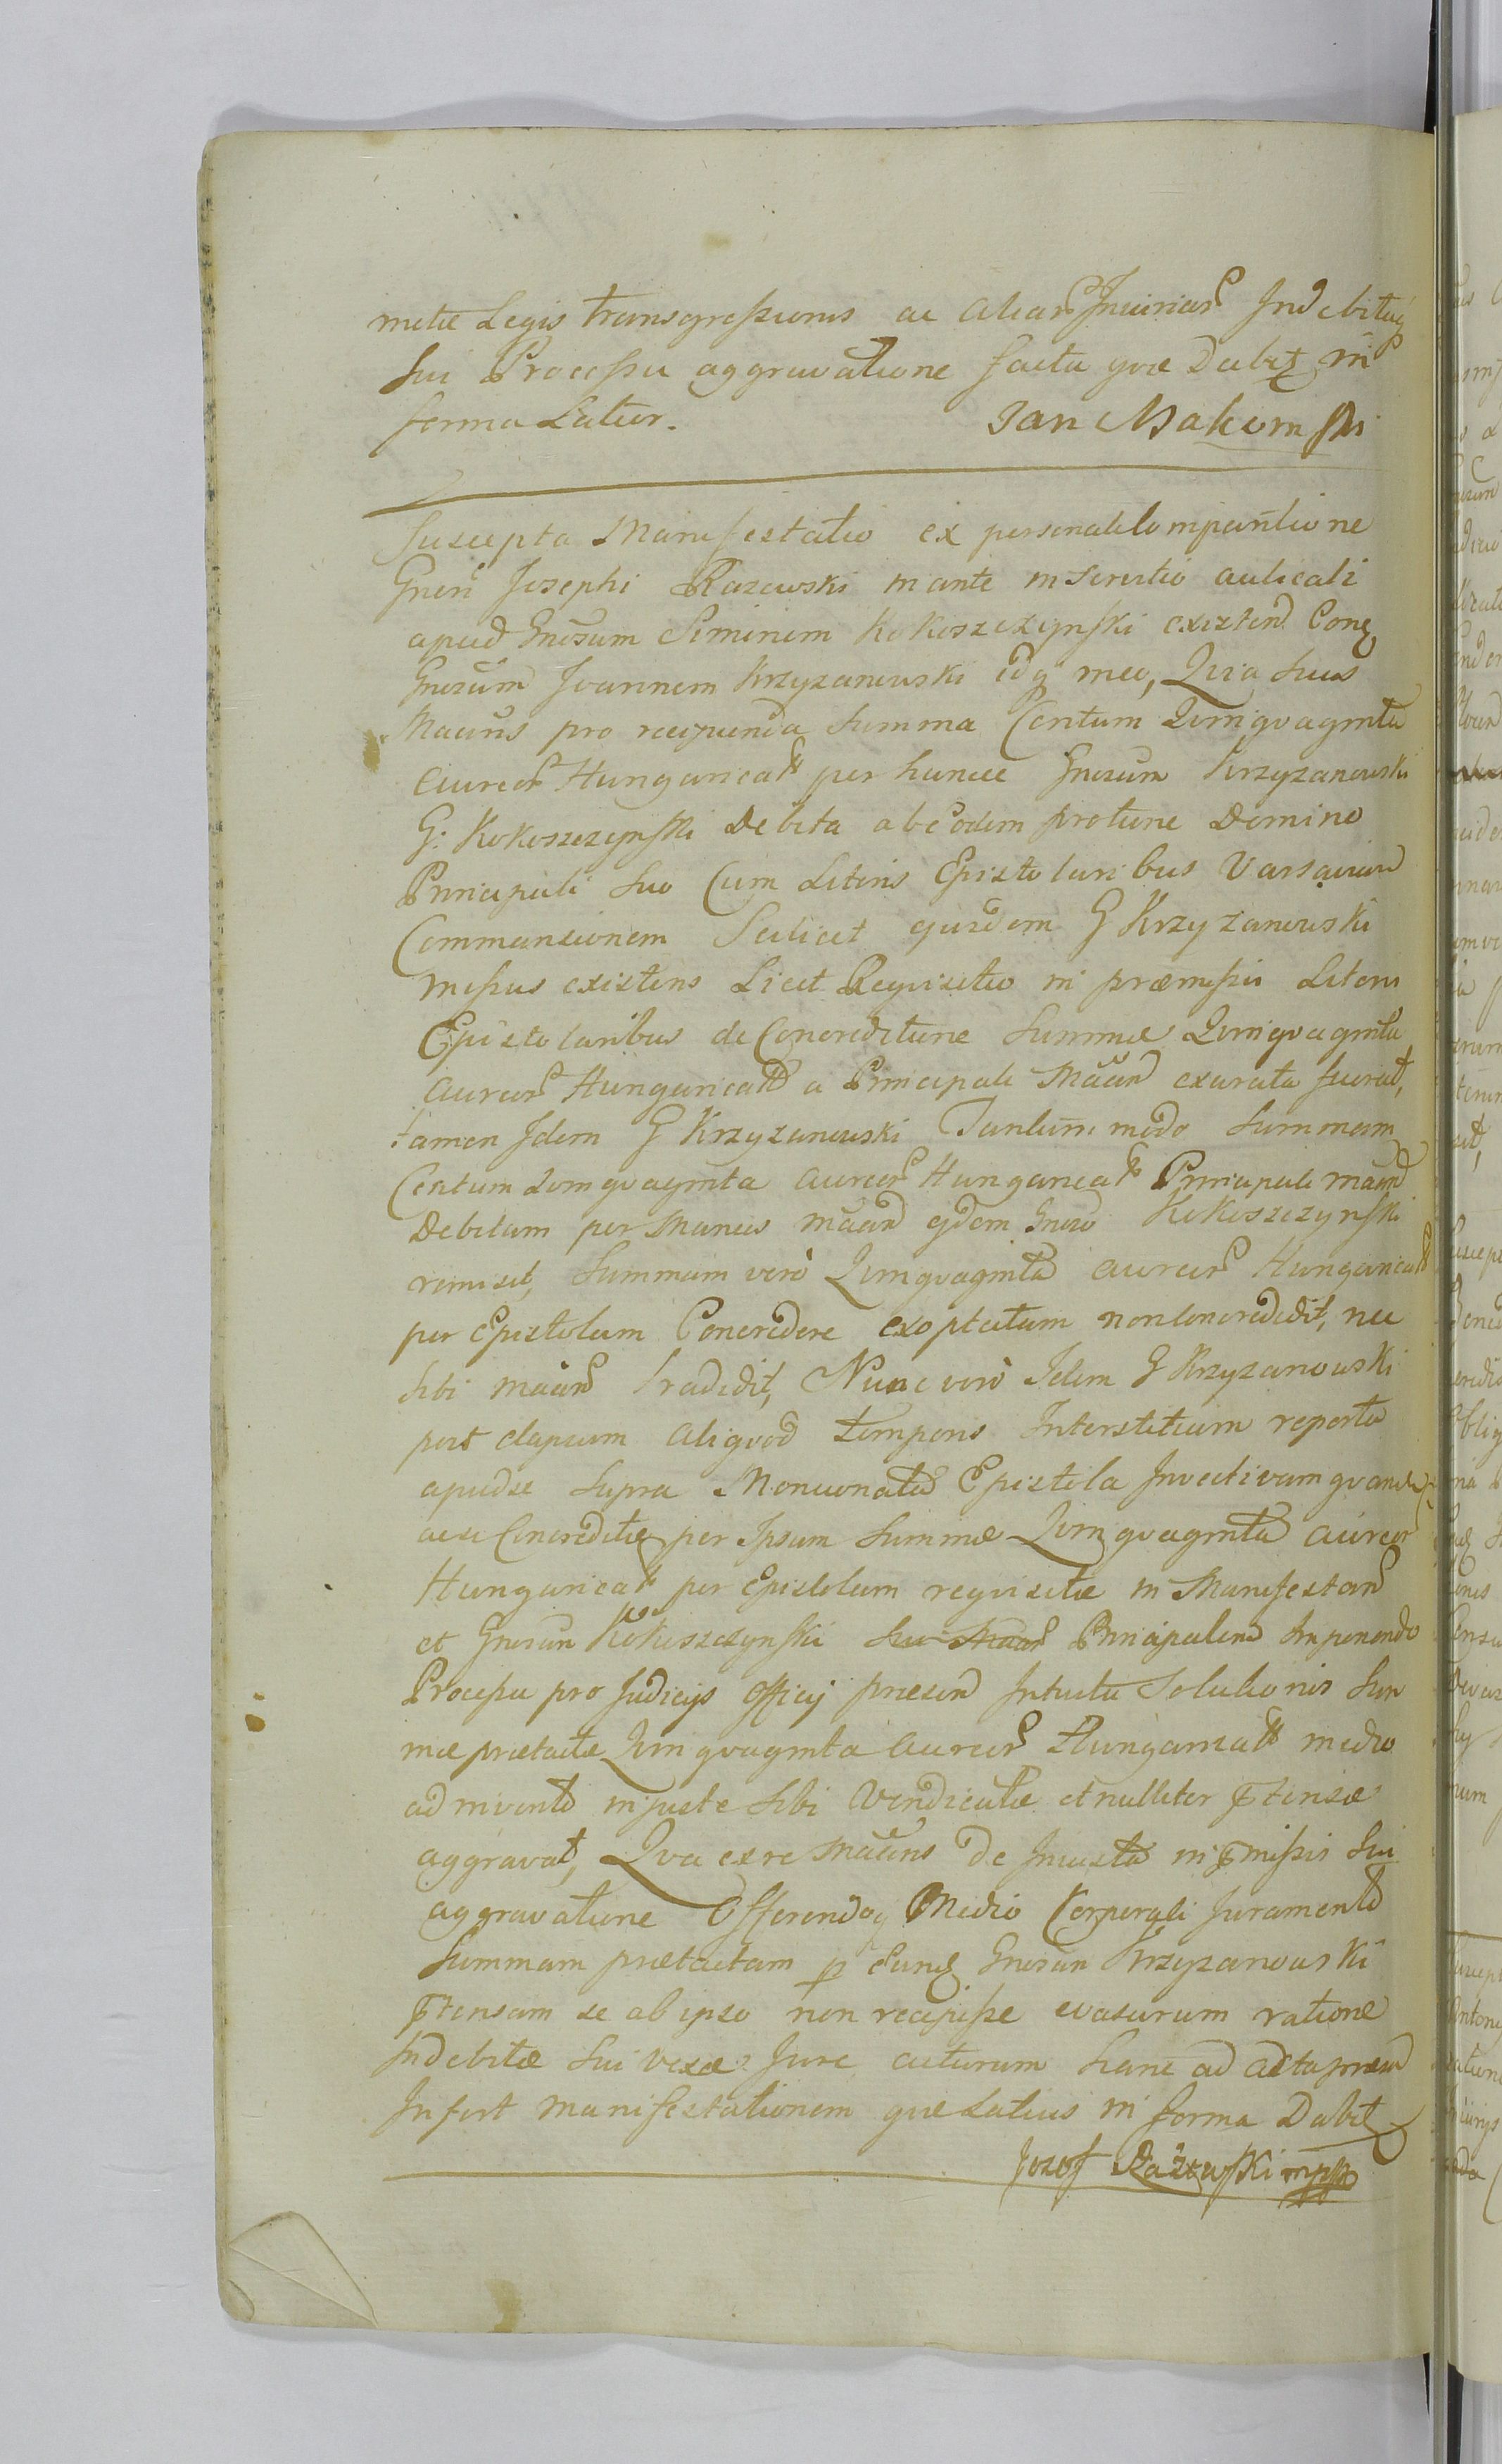 metæ Legis transgressionis ac aliar Iniuriar Indebitaq
sui Processu aggravatione facta quæ Dabit in
forma Latior. Jan Makomski
Suscepta Manifestatio ex personali Comparitione
Gneri Josephi Razewski in ante in Servitio aulicali
apud Gnesum Siminem Kokoszczynski existend Conq
Gnerum Joannem Krzyzanowski idq meo, Quia suus
Maans pro recipienda summa Centum Quinquaginta
aureor Hungaricat per hunce Gnerum Krzyzanowski
G: Kokoszczynski Debita ab eodem pro tunc Domino
Principali suo Cum Literis Epistolaribus Varsaviam
Commansionem Scilicet ejusdem G Krzyzanowski
missus existens Licet Requisitio in præmissis Literis
Epistolaribus de Concreditione summæ Quinquaginta
aureor Hungaricat a Principali Maan exarata fuerat,
tamen Idem G Krzyzanowski Tantummodo summam
Centum Quinquaginta aureor Hungaricat Principali maan
Debitam per Manus maan eidem Gneso Kokoszczynski
remisit, summam vero Quinquaginta aureor Hungaricat
per Epistolam Concredere exoptatam non Concredidit, nec
sibi maan tradidit, Nunc vero Idem G Krzyzanowski
post elapsum aliquod temporis Interstitium reperta
apud se supra Mentionata Epistola Invectivam quand
ac si Concreditæ per Ipsum summæ Quinquaginta aureor
Hungaricat per Epistolam requisitæ in Manifestan
et Gnerum Kokoszczynski suo Maan Principalem Imponendo
Processu pro Judicijs Officij præsen Intuitu Solutionis sum
mæ prætactæ Quinquaginta aureor Hungaricat medio
ad invento injuste sibi Vendicatæ et nulliter ptensæ
aggravat, Qua ex re Maans De Iniusta in pmissis sui
aggravatione Offerendoq Medio Corporali Juramento
summam prætactam p Eund Gnerum Krzyzanowski
ptensam se ab ipso non recepisse evasurum ratione
Indebitæ sui vexæ Jure acturum hanc ad acta præsen
Infert manifestationem quæ Latius in forma Dabit
Jozef Rażewski mpp